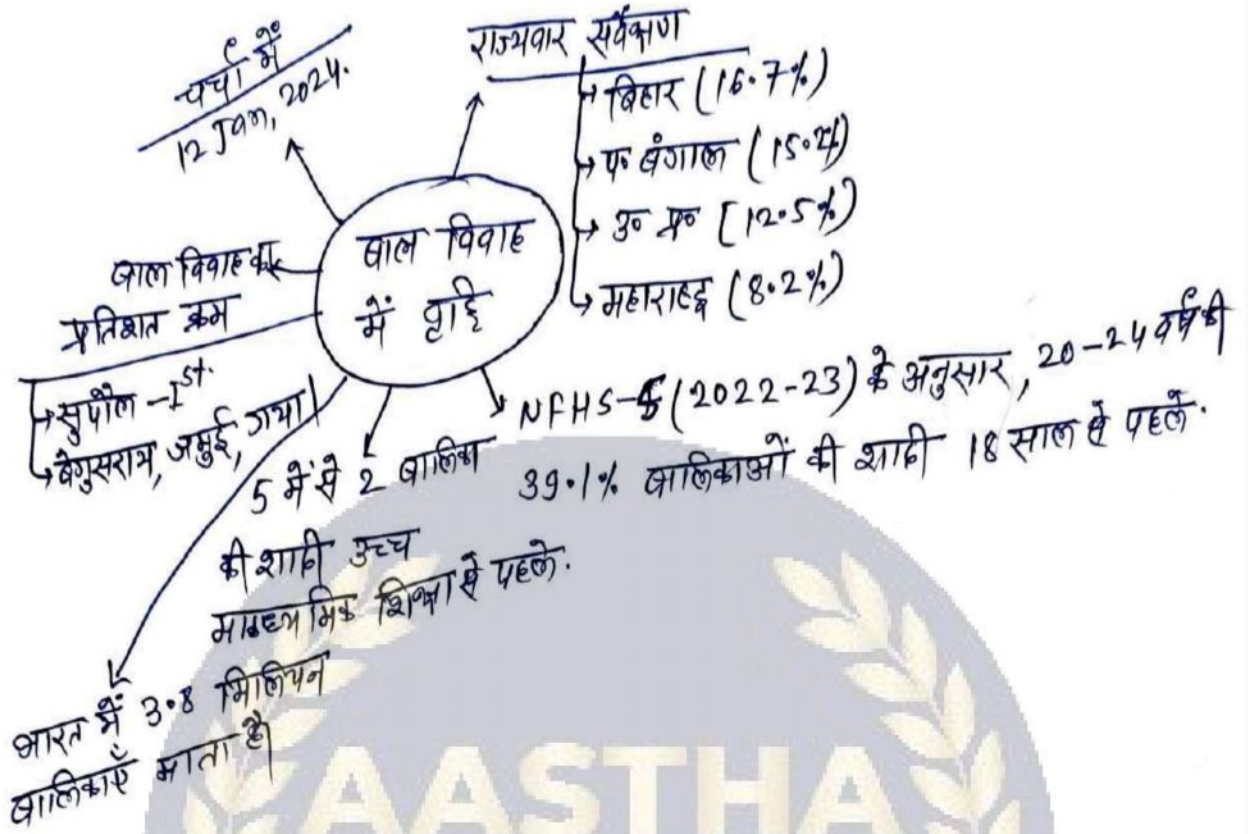 चर्चा में
12 Jan, 2024.
राज्यवार सर्वेक्षण
बिहार (16.7%)
प० बंगाल (15.2%)
उ० प्र० [12.5%)
महाराष्ट्र (8.2%)
बाल विवाह
में वृद्धि
बाल विवाह का
प्रतिशत क्रम
सुपौल - Ist.
बेगुसराय, जमुई, गया।
NFHS-5 (2022-23) के अनुसार, 20-24 वर्ष की
39.1% बालिकाओं की शादी 18 साल से पहले.
5 में से 2 बालिका
की शादी उच्च
माध्यमिक शिक्षा से पहले.
भारत में 3.8 मिलियन
बालिकाएँ माता है।
AASTHA